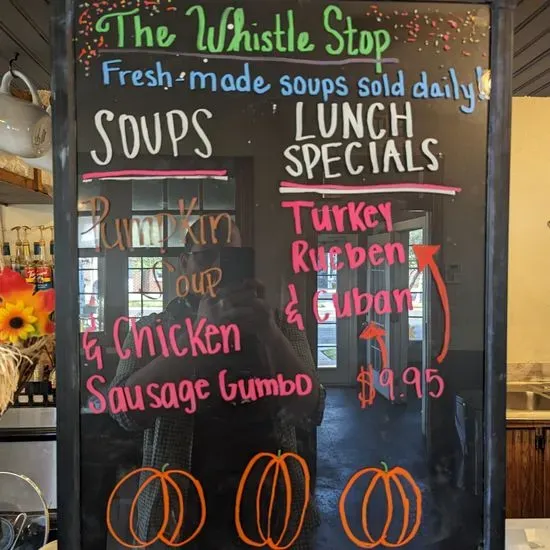 The Whistle Stop
Fresh-made soups sold daily!
SOUPS
Pumpkin
Soup
& Chicken
Sausage Gumbo
LUNCH
SPECIALS
Turkey
Rueben
& Cuban
$9.95